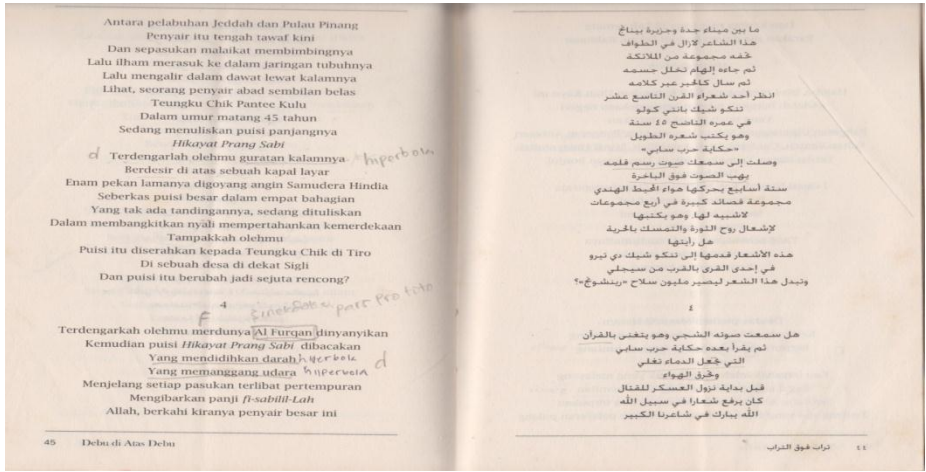 Antara pelabuhan Jeddah dan Pulau Pinang
Penyair itu tengah tawaf kini
Dan sepasukan malaikat membimbingnya
Lalu ilham merasuk ke dalam jaringan tubuhnya
Lalu mengalir dalam dawat lewat kalamnya
Lihat, seorang penyair abad sembilan belas
Teungku Chik Pantee Kulu
Dalam umur matang 45 tahun
Sedang menuliskan puisi panjangnya
Hikayat Prang Sabi
d Terdengarlah olehmu guratan kalamnya hiperbola
Berdesir di atas sebuah kapal layar
Enam pekan lamanya digoyang angin Samudera Hindia
Seberkas puisi besar dalam empat bahagian
Yang tak ada tandingannya, sedang dituliskan
Dalam membangkitkan nyali mempertahankan kemerdekaan
Tampakkah olehmu
Puisi itu diserahkan kepada Teungku Chik di Tiro
Di sebuah desa di dekat Sigli
Dan puisi itu berubah jadi sejuta rencong?
4
F pars pro toto
Terdengarkah olehmu merdunya Al Furqan dinyanyikan
Kemudian puisi Hikayat Prang Sabi dibacakan
Yang mendidihkan darah hiperbola
Yang memanggang udara d
Menjelang setiap pasukan terlibat pertempuran
Mengibarkan panji fi-sabilil-Lah
Allah, berkahi kiranya penyair besar ini
45 Debu di Atas Debu
ما بين ميناء جدة وجزيرة بينانج
هذا الشاعر لازال في الطواف
تحفه مجموعة من الملائكة
ثم جاءه إلهام تخلل جسمه
ثم سال كالحبر عبر كلامه
انظر أحد شعراء القرن التاسع عشر
تنكو شيك بانتي كولو
في عمره الناضج ٤٥ سنة
وهو يكتب شعره الطويل
«حكاية حرب سابي»
وصلت إلى سمعك صوت رسم قلمه
يهب الصوت فوق الباخرة
ستة أسابيع يحركها هواء المحيط الهندي
مجموعة قصائد كبيرة في أربع مجموعات
لاشبيه لها، وهو يكتبها
لإشعال روح الثورة والتمسك بالحرية
هل رأيتها
هذه الأشعار قدمها إلى تنكو شيك دي تيرو
في إحدى القرى بالقرب من سيجلي
وتبدل هذا الشعر ليصير مليون سلاح «رينشونج»؟
٤
هل سمعت صوته الشجي وهو يتغنى بالقرآن
ثم يقرأ بعده حكاية حرب سابي
التي تجعل الدماء تغلي
وتحرق الهواء
قبل بداية نزول العسكر للقتال
كان يرفع شعارا في سبيل الله
الله يبارك في شاعرنا الكبير
تراب فوق التراب ٤٤